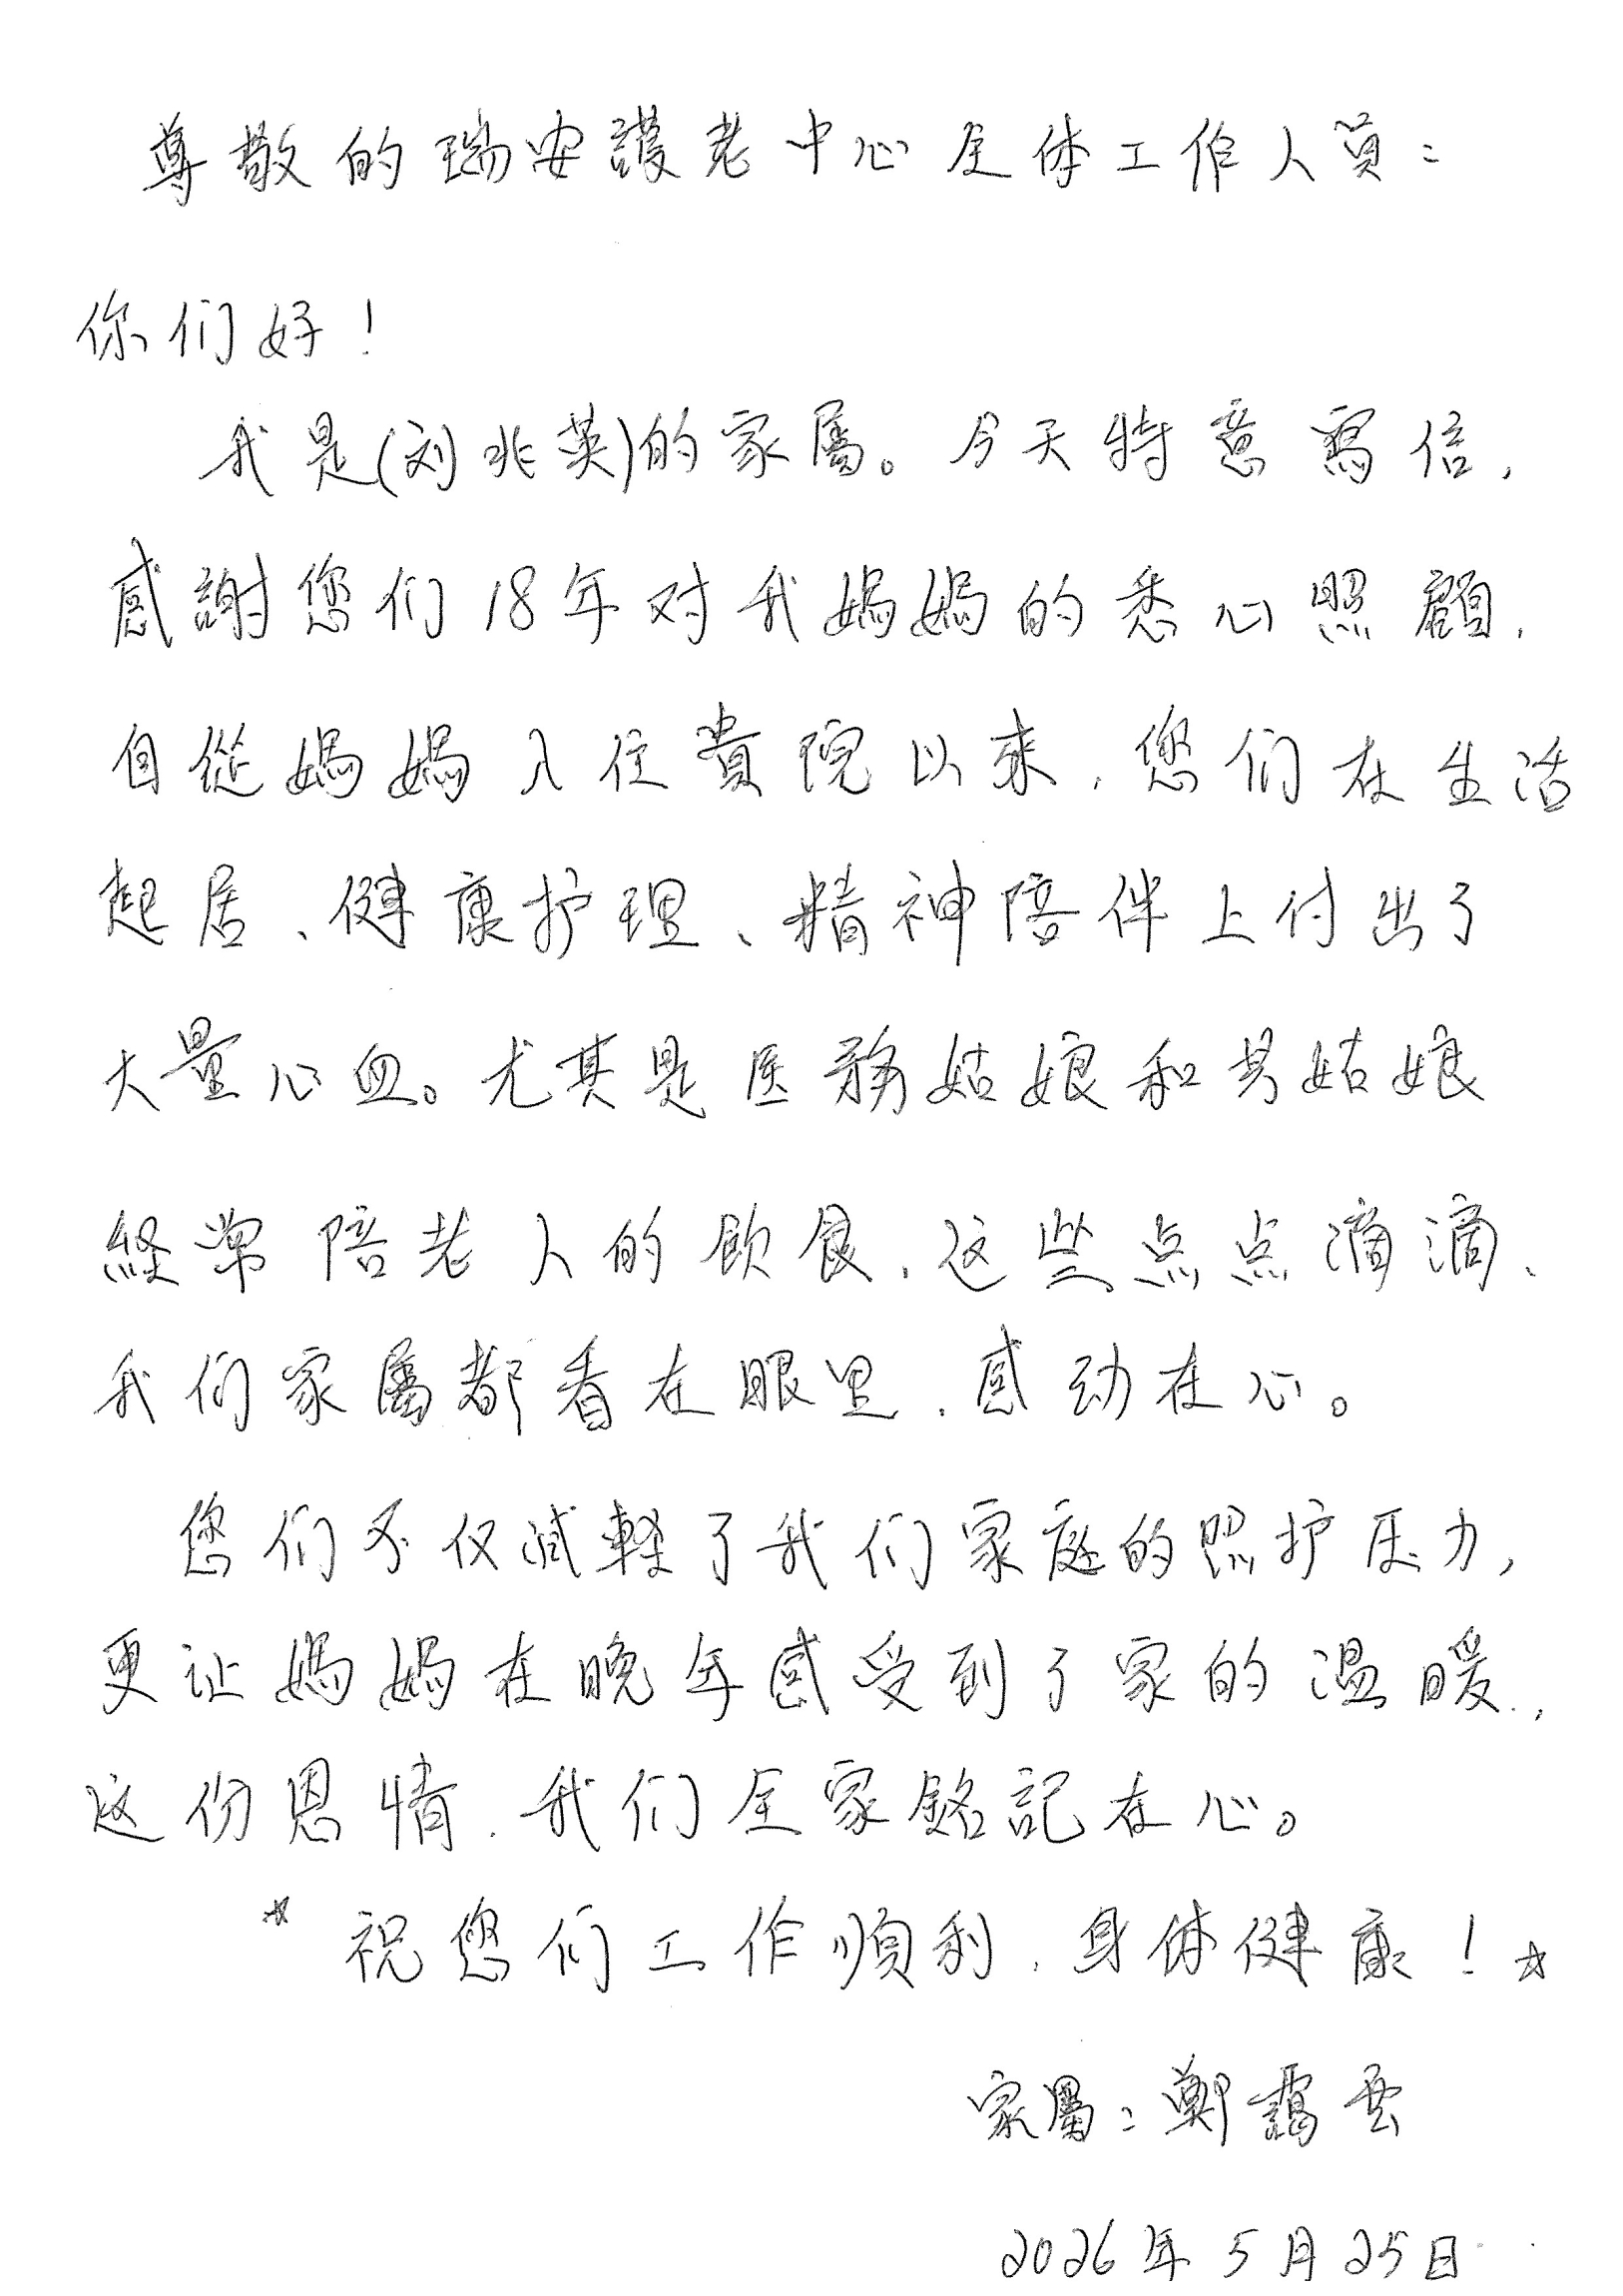 尊敬的瑞安護老中心全体工作人員：
你们好！
我是(刘兆英)的家屬。今天特意寫信，
感謝您们18年对我媽媽的悉心照顧，
自從媽媽入住貴院以來，您们在生活
起居、健康护理、精神陪伴上付出了
大量心血。尤其是医務姑娘和姑娘
經常陪老人的飲食，这些点点滴滴、
我们家屬都看在眼里，感动在心。
您们不仅減輕了我们家庭的照护压力，
更让媽媽在晚年感受到了家的温暖，
这份恩情，我们全家銘記在心。
* 祝您们工作順利，身体健康！☆
家屬：鄭靄雲
2026年5月25日